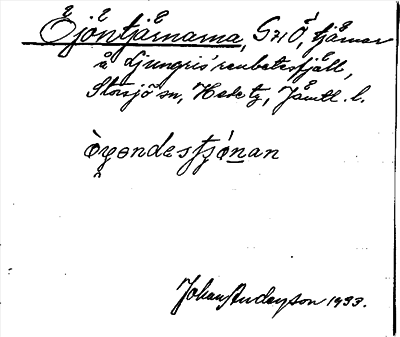 Öjöntjärnarna, S + Ö, tjärnar
å Ljungris renbetesfjäll,
Storsjö sn, Hede tg, Jämtl. l.
òyøndestjónan
Johan Anderson 1933.